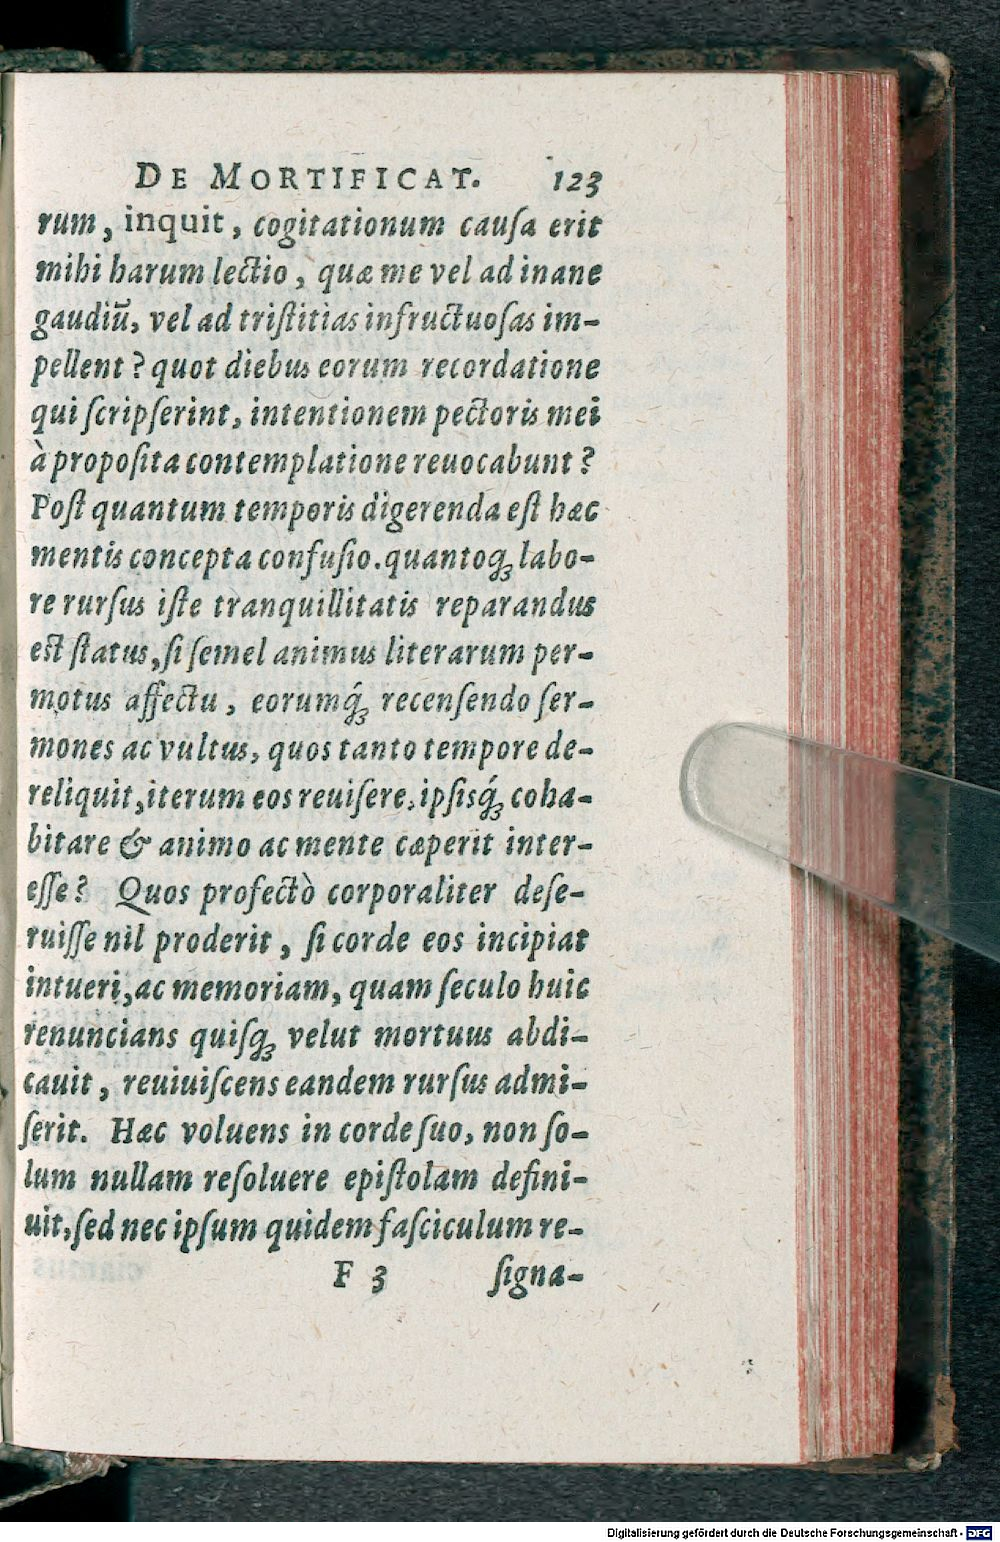 DE MORTIFICAT. 123
rum, inquit, cogitationum cauſa erit
mihi harum lectio, quæ me vel ad inane
gaudiũ, vel ad triſtitias infructuoſas im-
pellent? quot diebus eorum recordatione
qui ſcripſerint, intentionem pectoris mei
à propoſita contemplatione reuocabunt?
Poſt quantum temporis digerenda eſt hæc
mentis concepta confuſio. quantoq; labo-
re rurſus iſte tranquillitatis reparandus
eſt ſtatus, ſi ſemel animus literarum per-
motus affectu, eorumq́; recenſendo ſer-
mones ac vultus, quos tanto tempore de-
reliquit, iterum eos reuiſere, ipſisq́; coha-
bitare & animo ac mente cæperit inter-
eſſe? Quos profectò corporaliter deſe-
ruiſſe nil proderit, ſi corde eos incipiat
intueri, ac memoriam, quam ſeculo huic
renuncians quiſq; velut mortuus abdi-
cauit, reuiuiſcens eandem rurſus admi-
ſerit. Hæc voluens in corde ſuo, non ſo-
lum nullam reſoluere epiſtolam defini-
uit, ſed nec ipſum quidem faſciculum re-
F 3 ſigna-
Digitalisierung gefördert durch die Deutsche Forschungsgemeinschaft - DFG